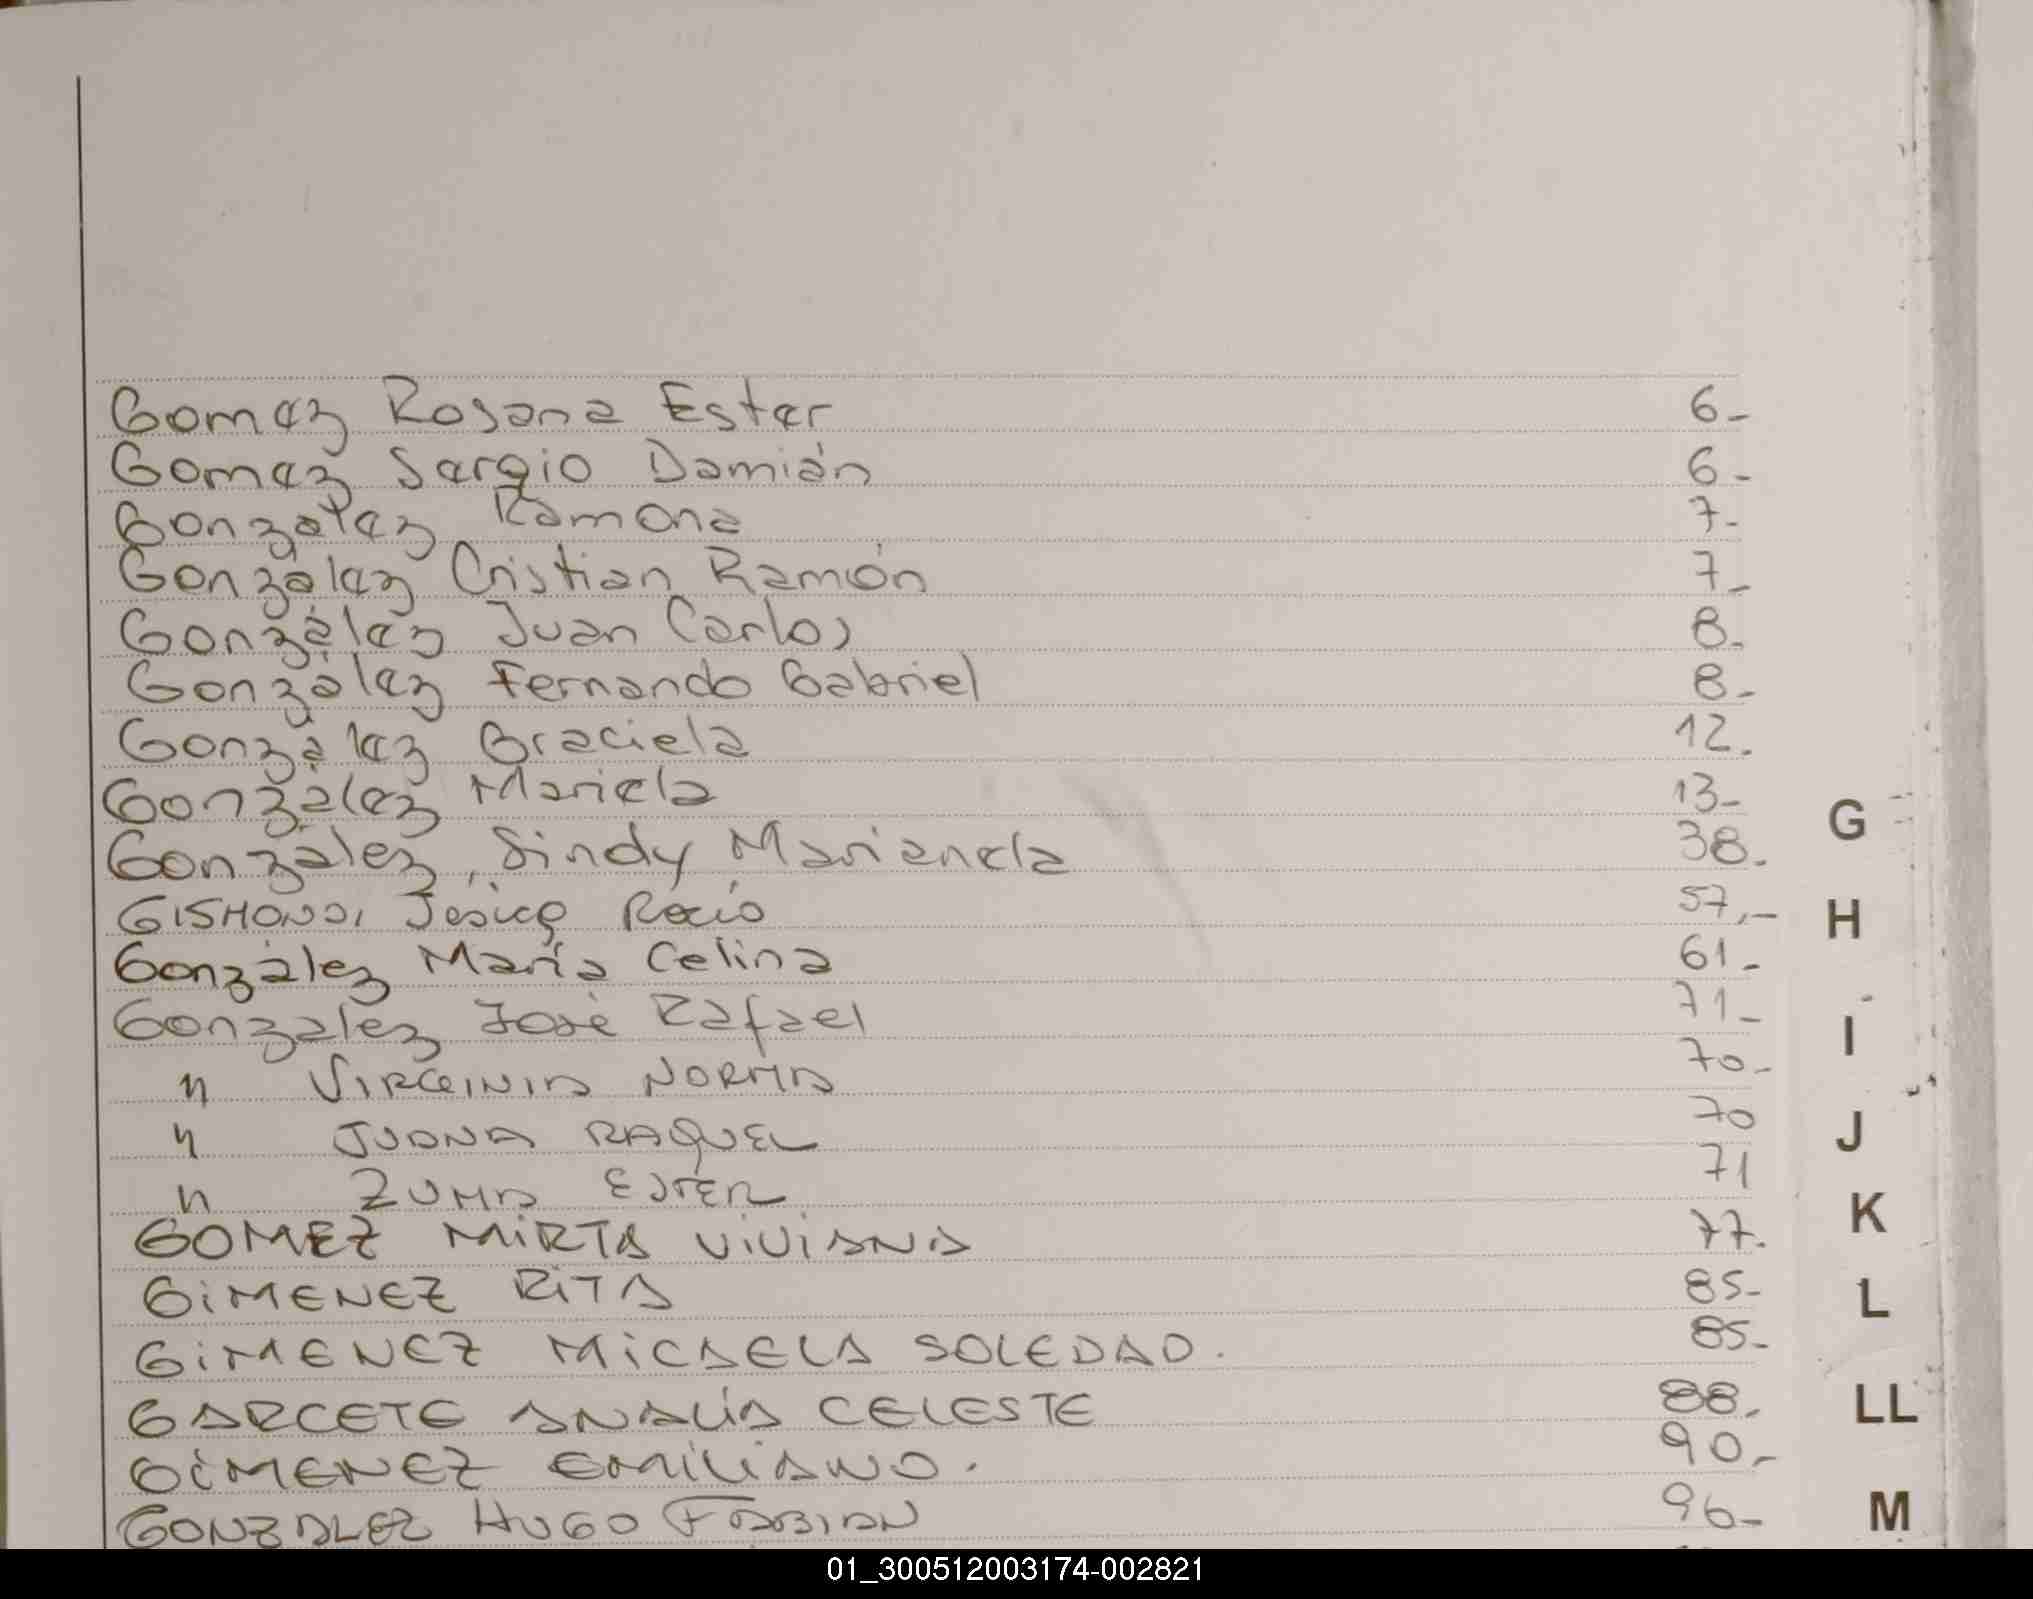 Gomez Rosana Ester 6-
Gomez Sergio Damián 6-
Gonzalez Ramona 7-
González Cristian Ramón 7-
González Juan Carlos 8-
González Fernando Gabriel 8-
González Graciela 12.
González Mariela 13-
González, Sindy Marianela 38.
GISMONDI Jesica Rocío 57,-
González María Celina 61-
Gonzalez José Rafael 71-
" VIRGINIA NORMA 70-
" JUANA RAQUEL 70
" ZUMA ESTER 71
GOMEZ MIRTA VIVIANA 77.
GIMENEZ RITA 85-
GIMENEZ MICAELA SOLEDAD. 85-
GARCETE ANALÍA CELESTE 88,
GIMENEZ EMILIANO. 90,-
GONZALEZ HUGO FABIAN 96-
G
H
I
J
K
L
LL
M
01_300512003174-002821